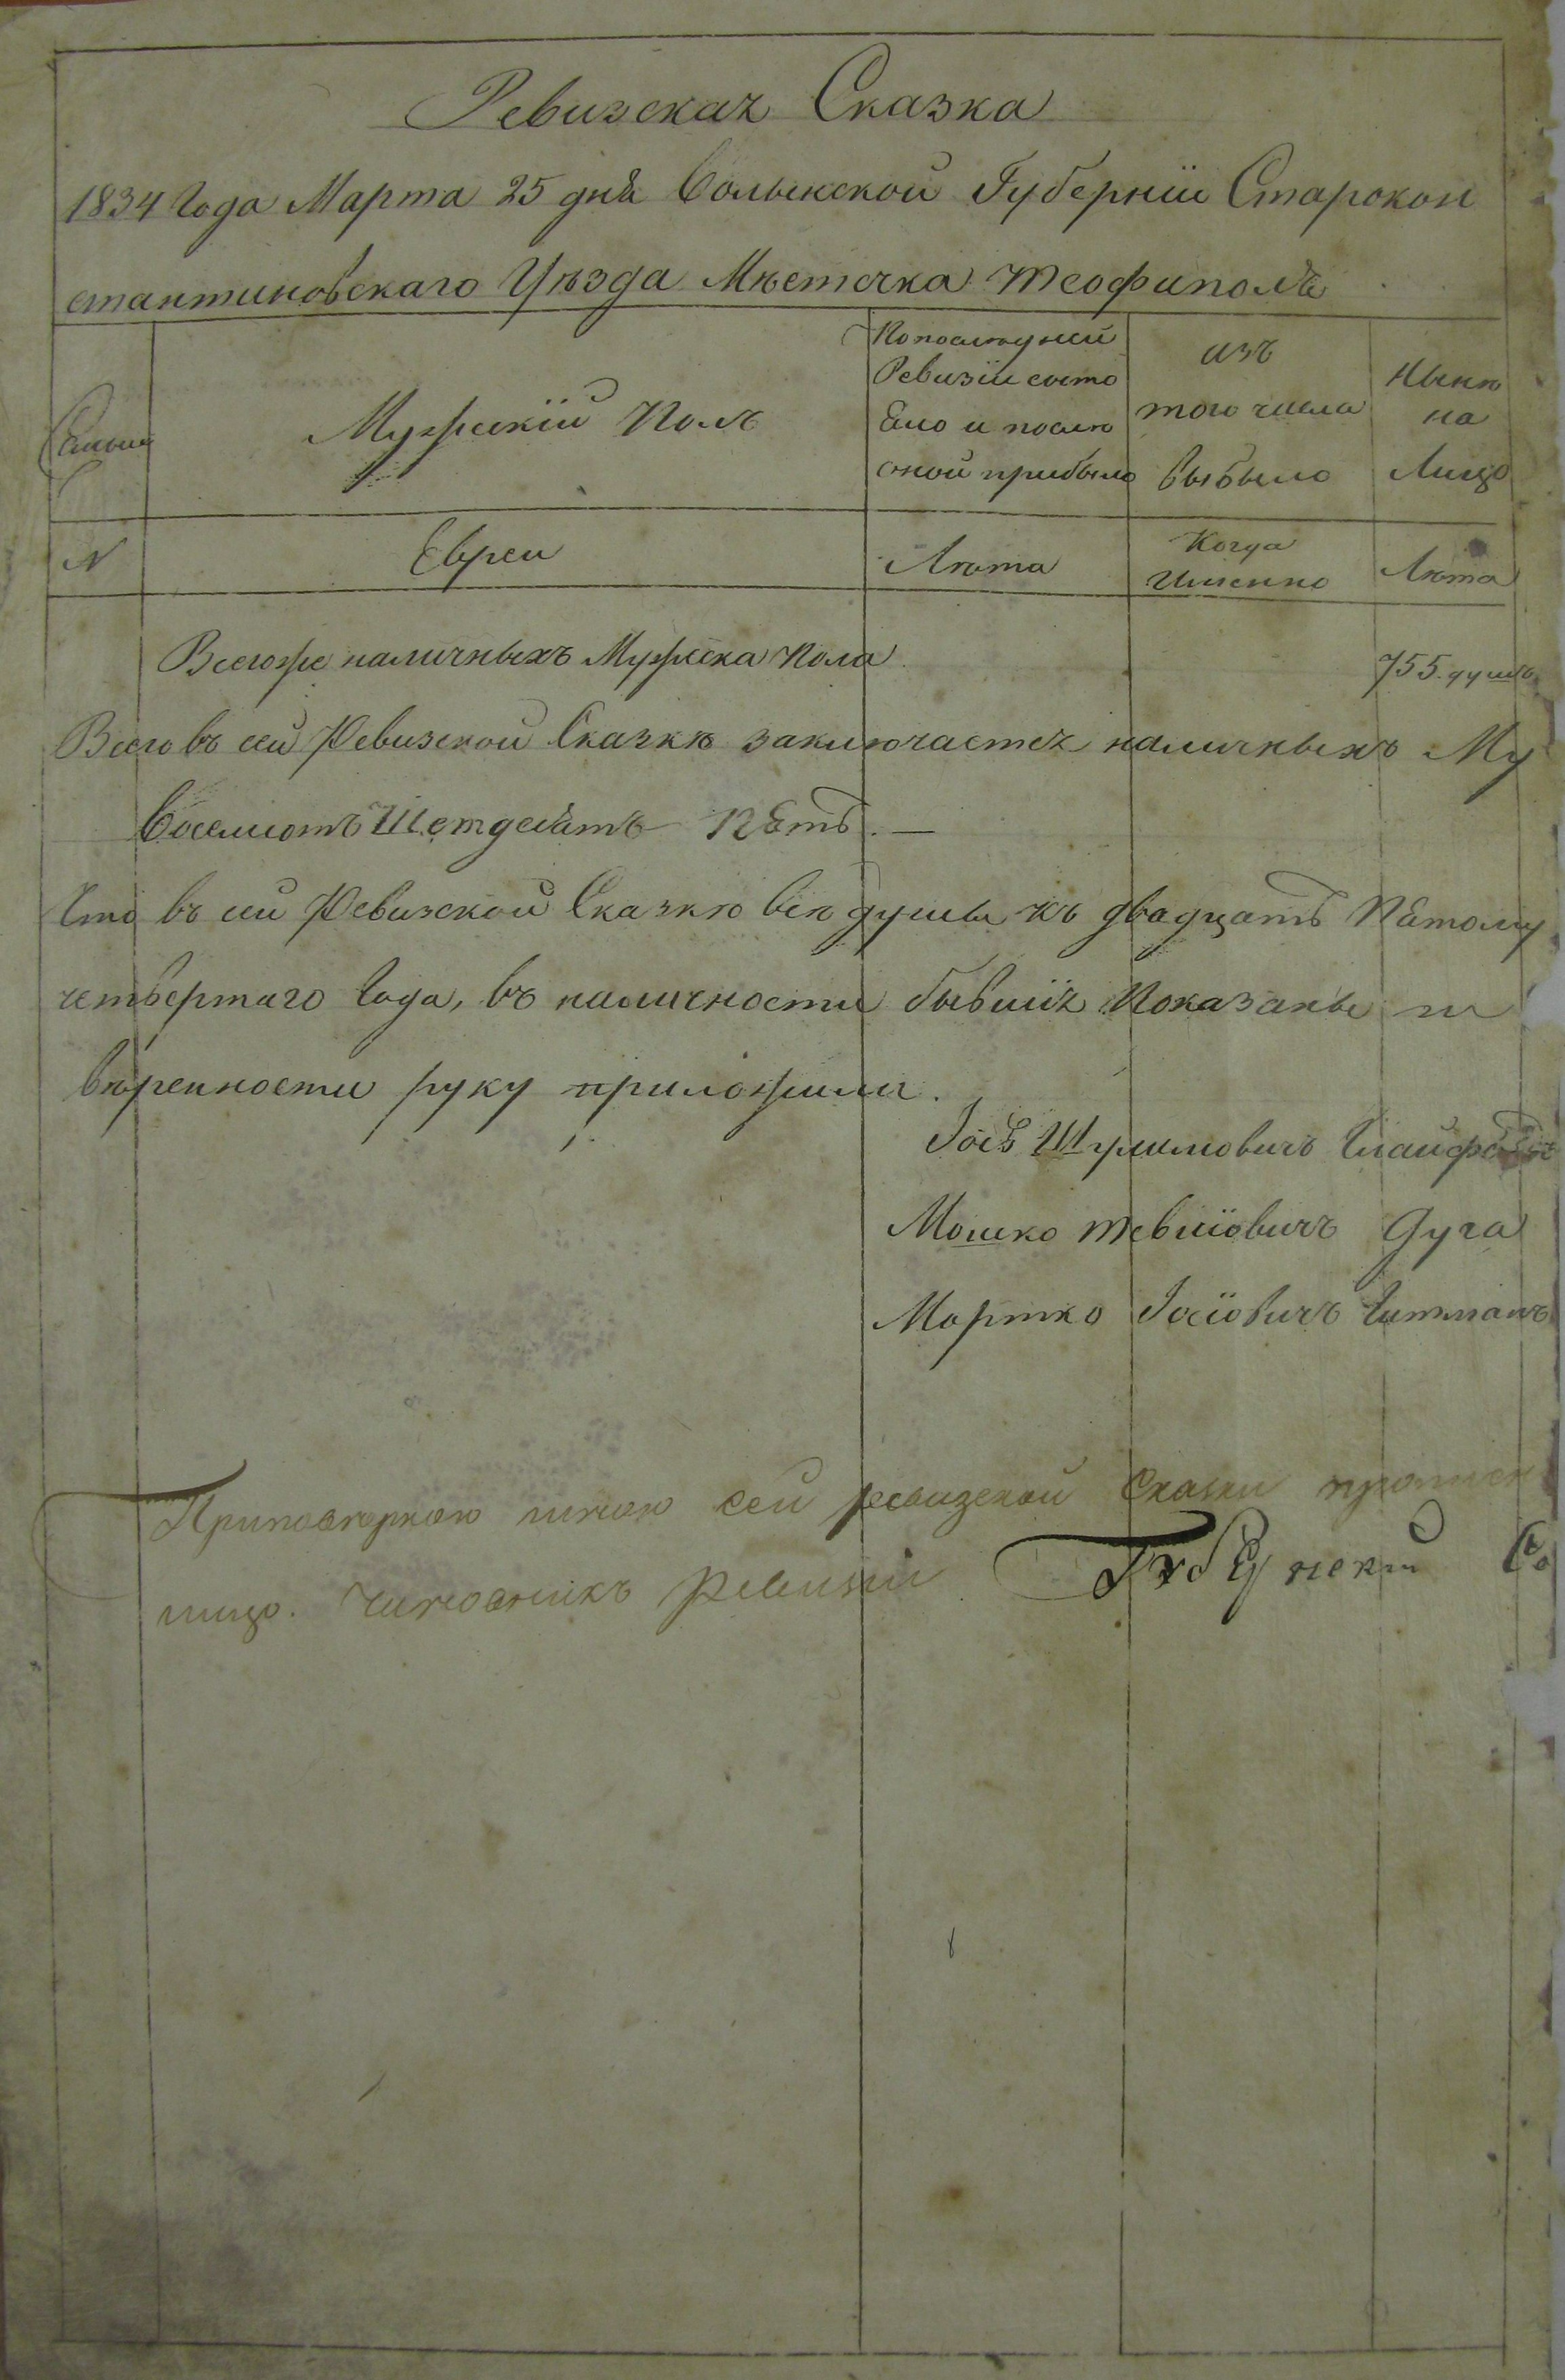 Ревизская Сказка
1834 Года Марта 25 дня Волынской Губерніи Старокон
стантиновскаго Уѣзда Мѣстечка Теофиполя
Семьи
Мужескій Полъ
По последней
Ревизіи состо
яло и после
оной прибыло
изъ
того числа
выбыло
Нынѣ
на
Лицо
N
Евреи
Лѣта
Когда
Именно
Лѣта
Всегоже наличныхъ Мужеска Пола
755. душъ
Всего въ сей Ревизской Сказкѣ заключается наличныхъ Му
Восемсотъ Шетдесятъ Пять. —
Что въ сей Ревизской Сказкѣ всѣ души къ двадцать Пятому
четвертаго Года, въ наличности бывшія Показаны
вѣренности руку приложили.
Іось Шулимовичъ
Мошко Тевшіовичъ Дуга
Мортко Іосіовичъ Гитманъ
сей ревизской Сказки
лицо. Чиновникъ Ревизіи